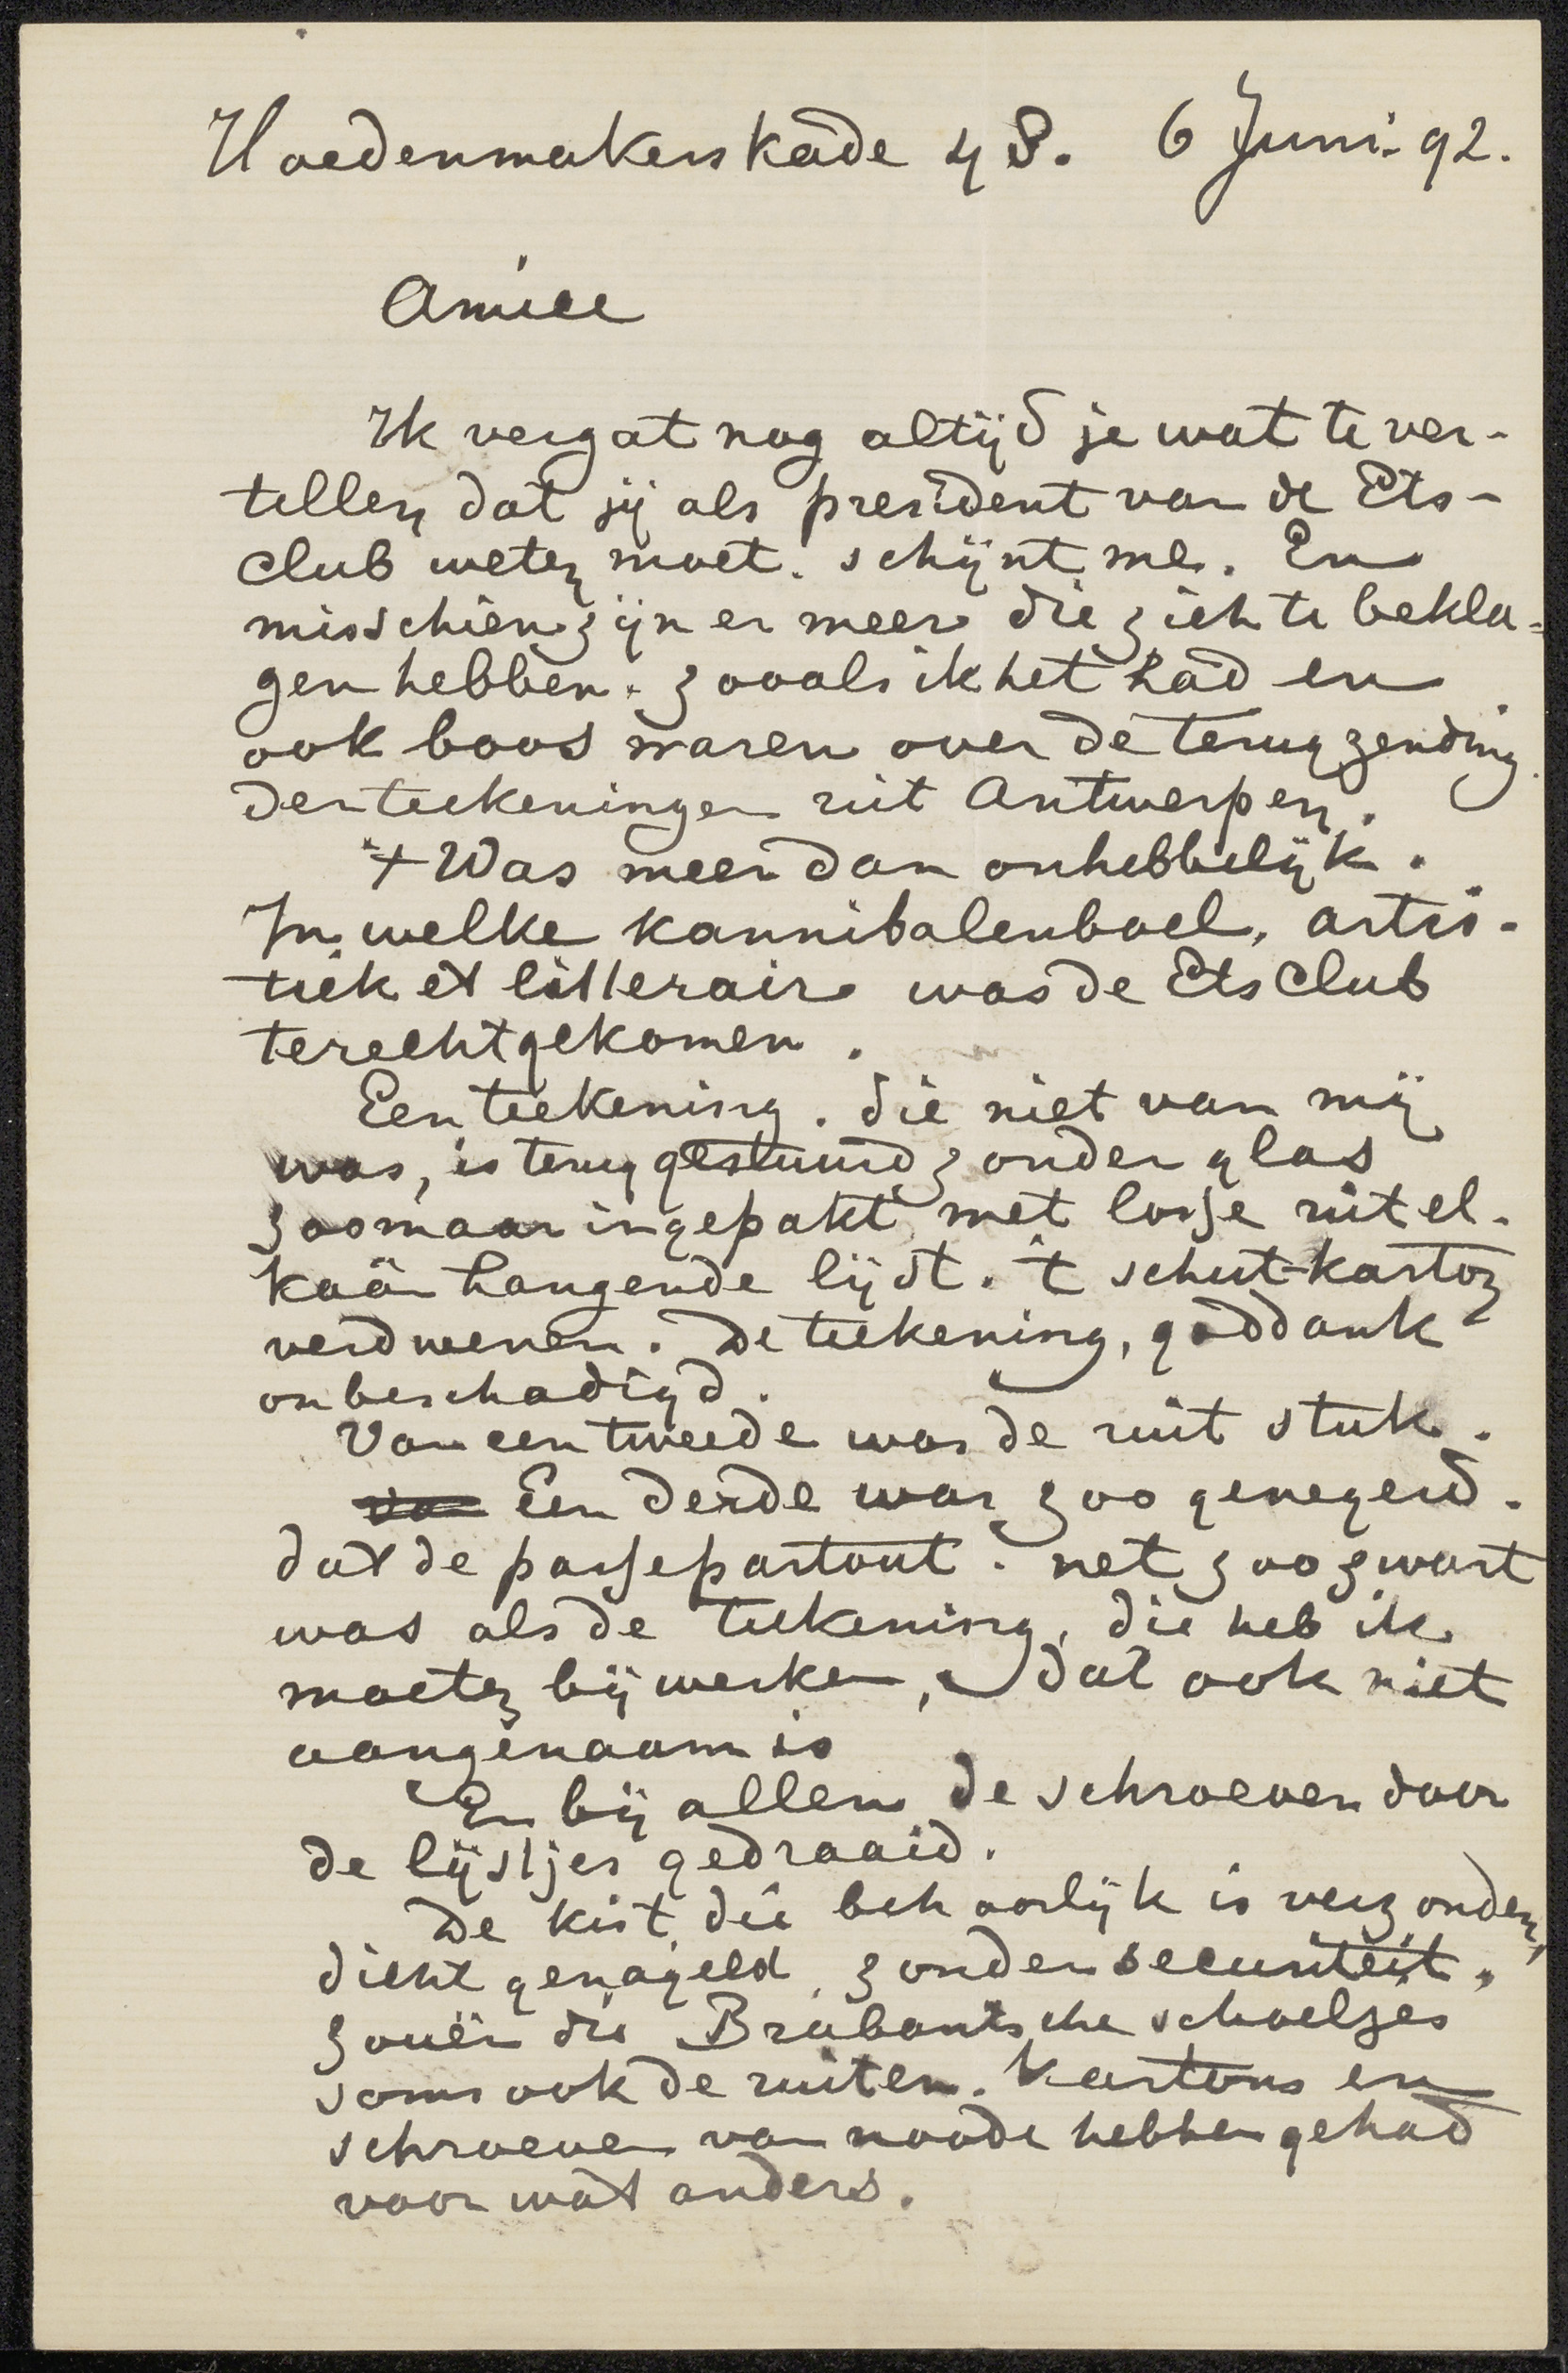 Hoedenmakerskade 48. 6 Juni. 92.
Amice
Ik vergat nog altijd je wat te ver-
tellen, dat jij als president van de Ets-
club weten moet. schijnt me. En
misschien zijn er meer die zich te bekla-
gen hebben. zooals ik het had en
ook boos waren over de terugzending
der teekeningen uit Antwerpen.
't Was meer dan onhebbelijk.
In welke kannibalenboel, artis-
tiek et litterair was de Etsclub
terechtgekomen.
Een teekening. die niet van mij
was, is teruggestuurd zonder glas
zoomaar ingepakt met losse uit el-
kaâr hangende lijst. 't schut-karton
verdwenen. De teekening, goddank
onbeschadigd.
Van een tweede was de ruit stuk.
va Een derde was zoo genegerd.
dat de passepartout. net zoo zwart
was als de teekening, die heb ik
moeten bijwerken, dat ook niet
aangenaam is
En bij allen de schroeven door
de lijstjes gedraaid.
De kist, die behoorlijk is verzonden,
dicht genageld, zonder securiteit,
zouën die Brabantsche schoeljes
soms ook de ruiten. kartons en
schroeven van noode hebben gehad
voor wat anders.